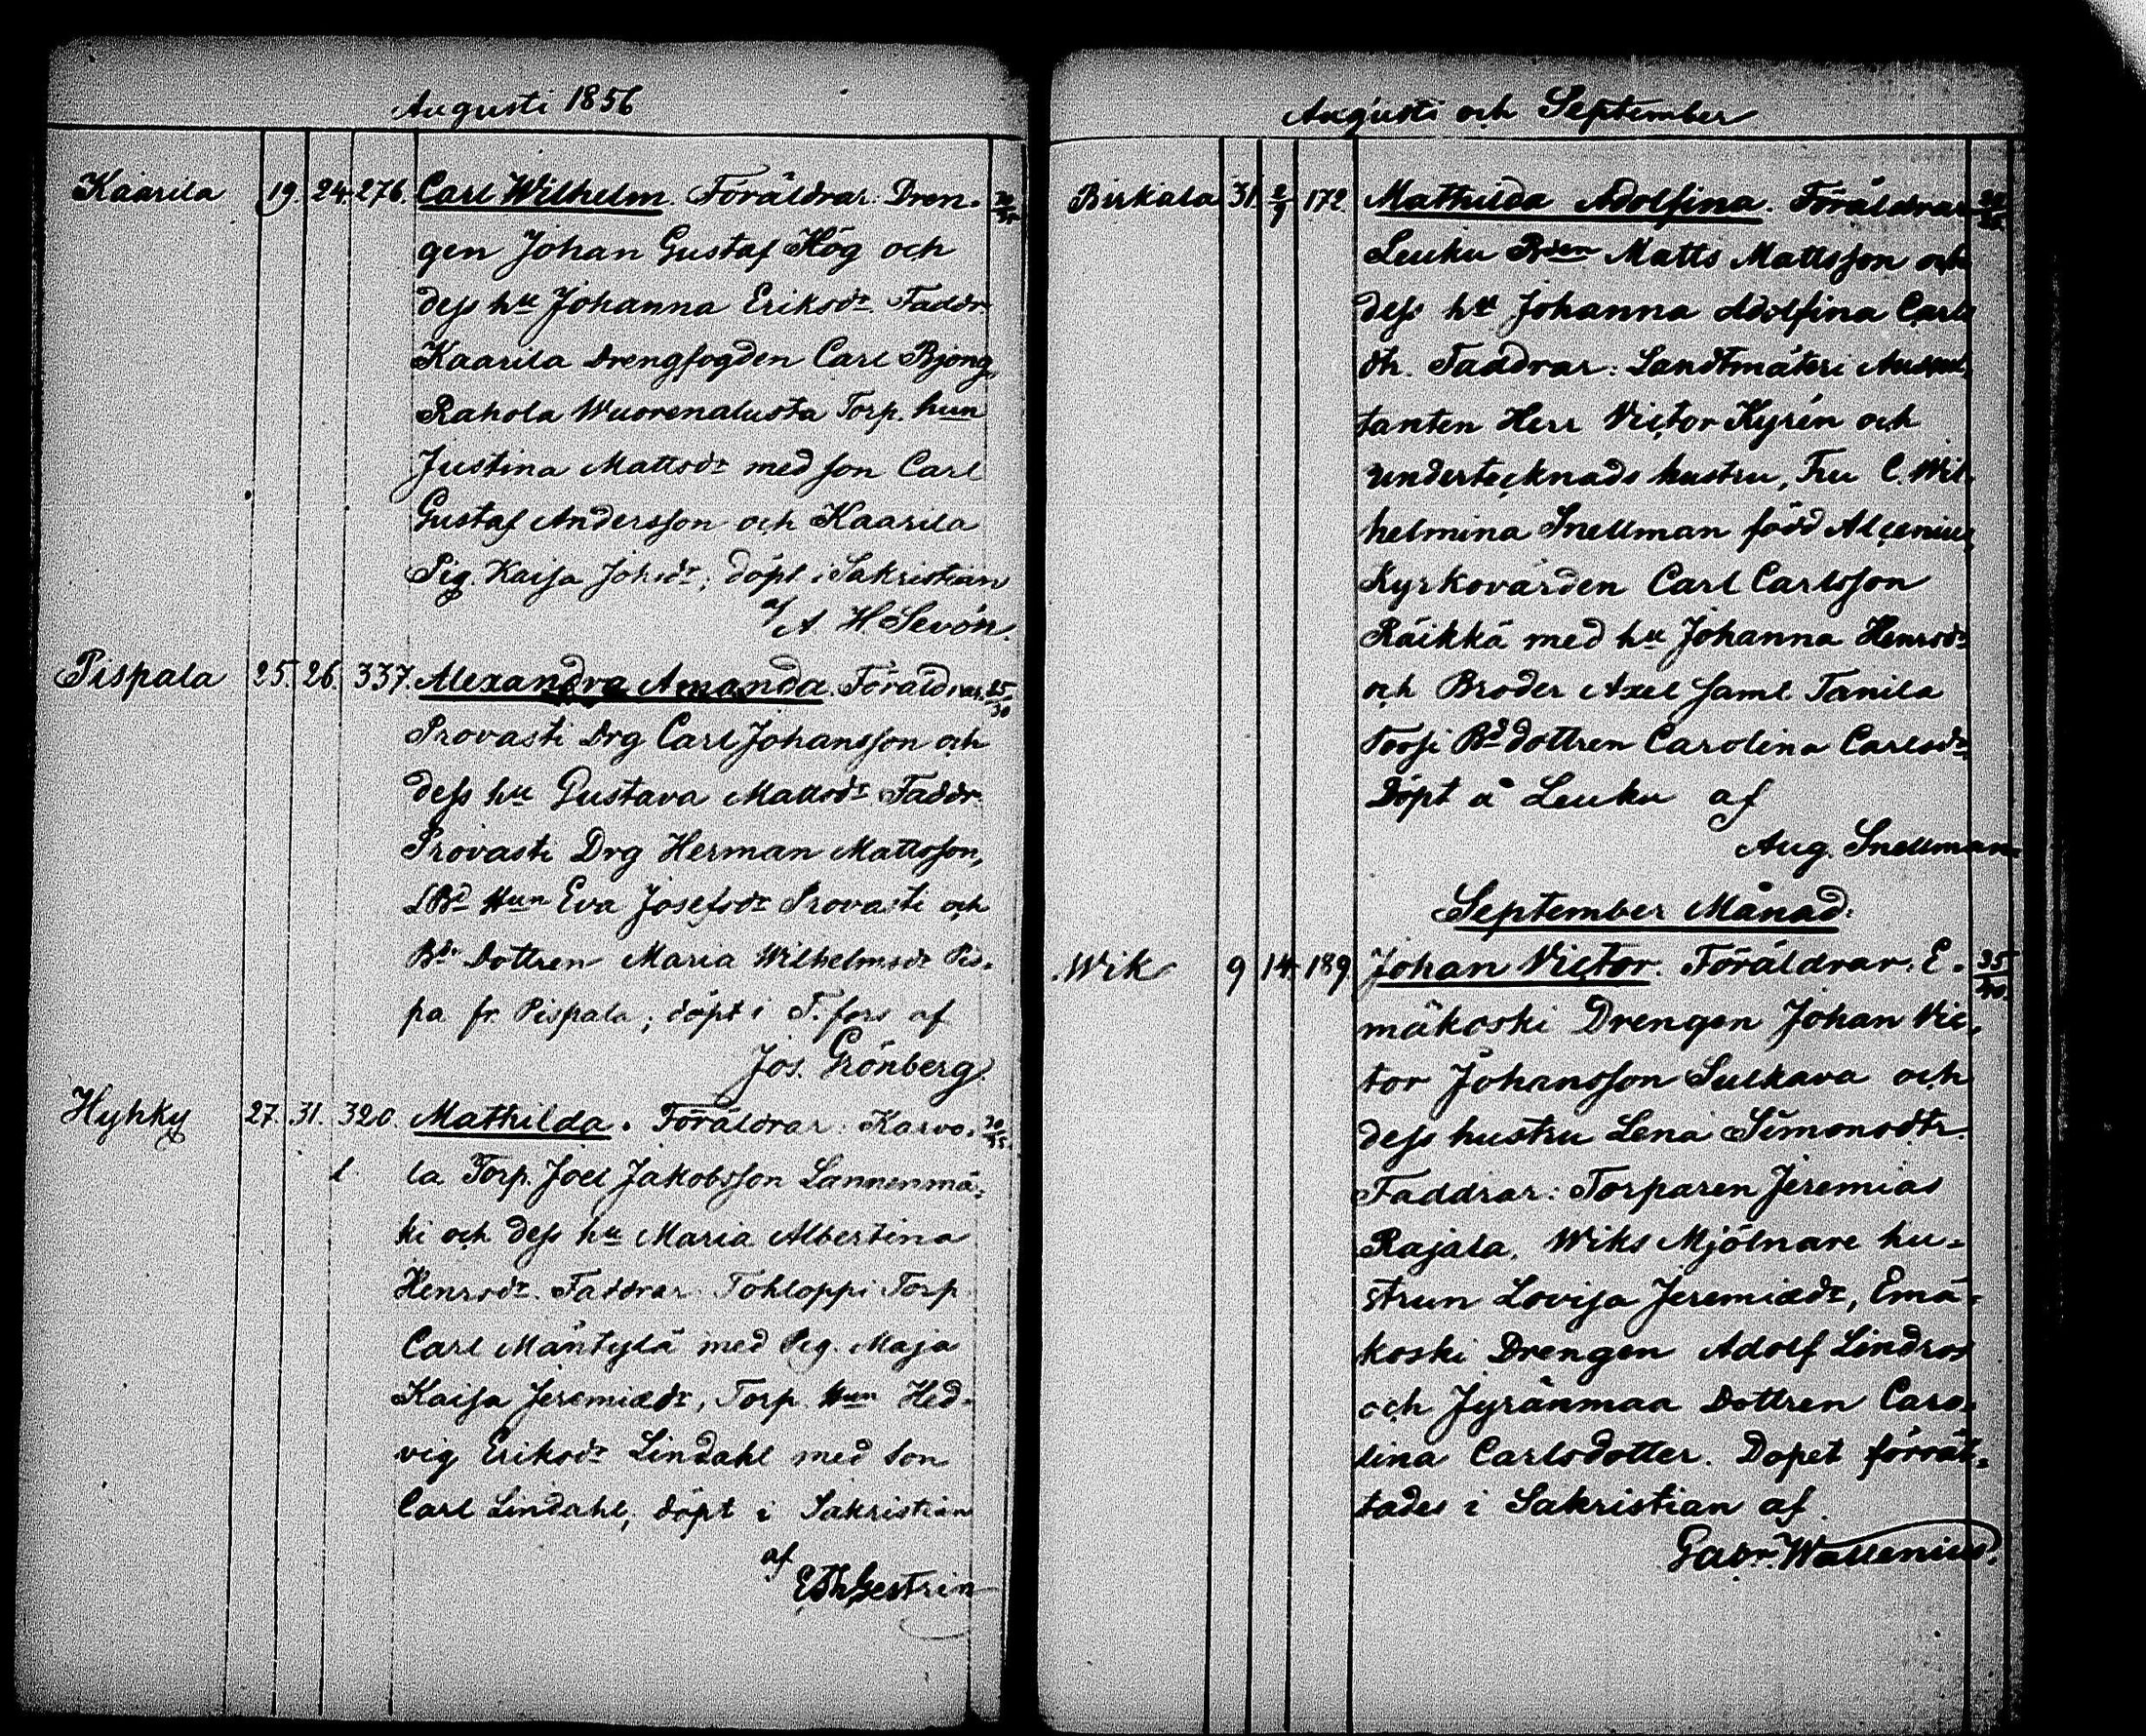 Augusti 1856
Kaarila 19. 24. 276. Carl Wilhelm. Föräldrar: Dren-
gen Johan Gustaf Hög och
dess hu Johanna Eriksdr. Faddr
Kaarila Drengfogden Carl Bjong,
Rahola Wuorenalusta Torp. hun
Justina Mattsdr med son Carl
Gustaf Andersson och Kaarila
Pig. Kaisa Johsdr; döpt i Sakristian
af A. H. Sevón.
Pispala 25. 26. 337. Alexandra Amanda. Föräldrar, 25/30
Provasti Drg Carl Johansson och
dess hu Gustava Mattsdr Faddr
Provasti Drg Herman Mattsson,
LBd Hun Eva Josefsdr Provasti och
Bdr Dottren Maria Wilhelmsdr Pis-
pa fr. Pispala; döpt i T.fors af
Jos. Grönberg.
Hyhky 27. 31. 320. Mathilda. Föräldrar: Karvo-
l. la Torp. Joel Jakobsson Lannenmä-
ki och dess hu Maria Albertina
Henrsdr. Faddrar Tohloppi Torp
Carl Mäntylä med Pig. Maja
Kaisa Jeremiædr, Torp. Hun Hed-
vig Eriksdr Lindahl med son
Carl Lindahl; döpt i Sakristian
af
E Th Gestrin
Augusti och September
Birkala 31. 2/9 172. Mathilda Adolfina. Föräldrar
Leuku Bden Matts Mattsson och
dess hu Johanna Adolfina Carls
dtr. Faddrar: Landtmäteri Auscul-
tanten Herr Victor Kyrén och
undertecknads hustru, Fru C. Wil-
helmina Snellman född Alcenius,
Kyrkovärden Carl Carlsson
Räikkä med hu Johanna Henrsdr
och Broder Axel saml Tanila
Bd dottren Carolina Carlsdr
Döpt å Leuku af
Aug. Snellman
September Månad:
Wik 9 14 189 Johan Victor. Föräldrar. E- 35/40.
mäkoski Drengen Johan Vic-
tor Johansson Sulkava och
dess hustru Lena Simonsdtr.
Faddrar: Torparen Jeremias
Rajala, Wiks Mjölnare hu-
strun Lovisa Jeremiædr, Emä-
koski Drengen Adolf Lindros
och Jyränmaa Dottren Caro-
lina Carlsdotter. Dopet förrät-
tades i Sakristian af
Gabr. Wallenius.